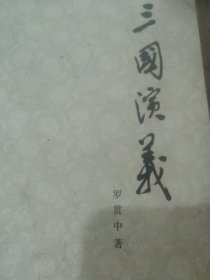 三國演義
罗贯中著